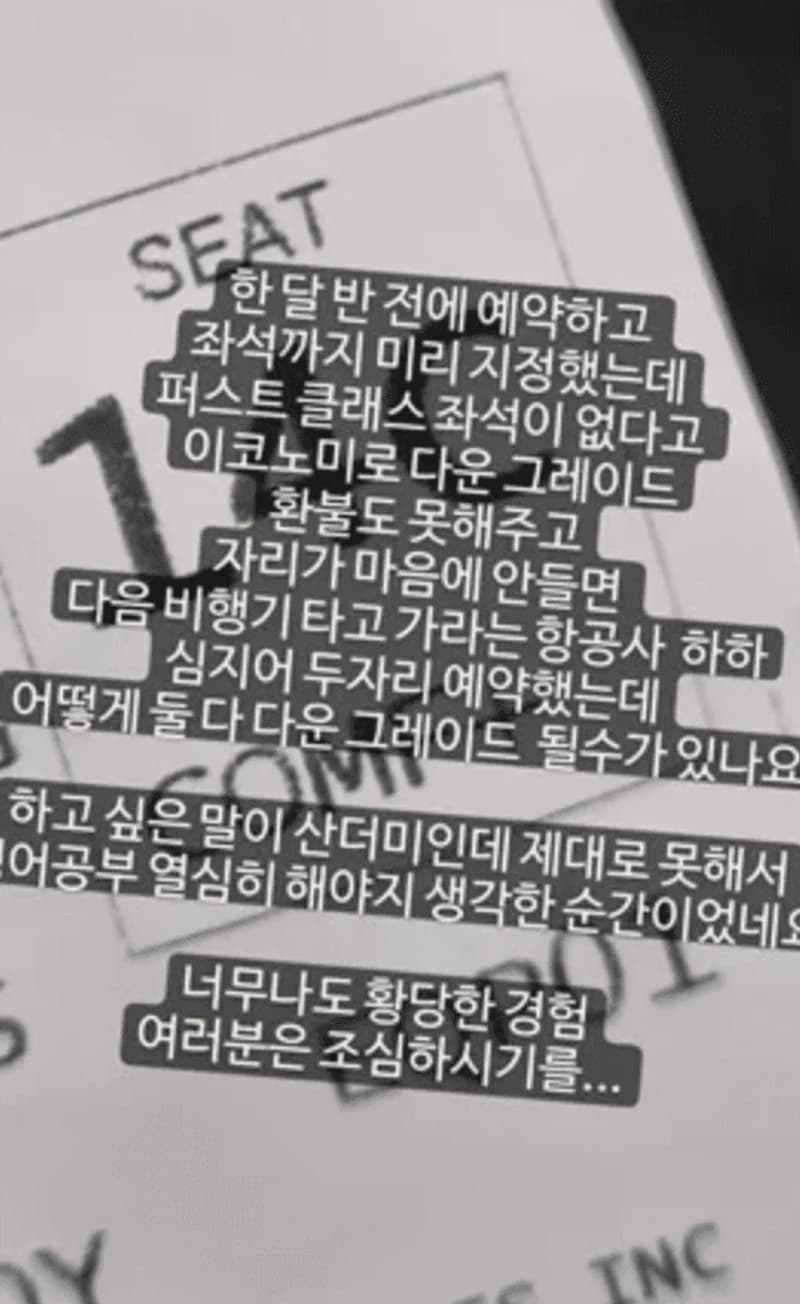 SEAT
한 달 반 전에 예약하고
좌석까지 미리 지정했는데
퍼스트 클래스 좌석이 없다고
이코노미로 다운 그레이드
환불도 못해주고
자리가 마음에 안들면
다음 비행기 타고 가라는 항공사 하하
심지어 두자리 예약했는데
어떻게 둘 다 다운 그레이드 될수가 있나요
하고 싶은 말이 산더미인데 제대로 못해서
열심히 해야지 생각한 순간이었네요
너무나도 황당한 경험
여러분은 조심하시기를...
INC